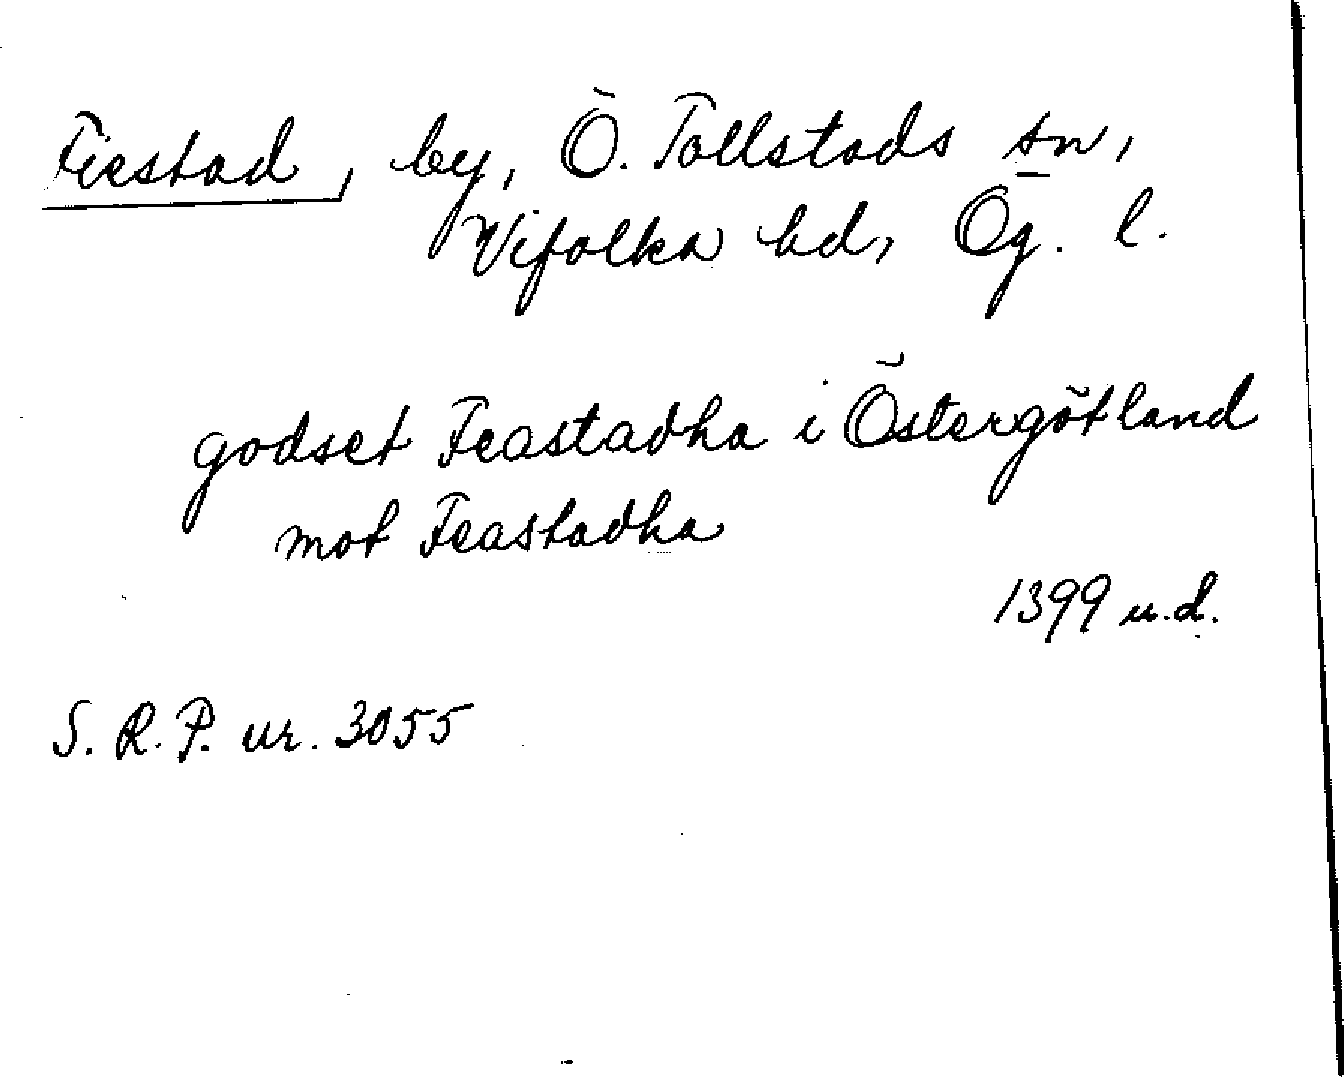 Fiestad, by, Ö. Tollstads sn,
Vifolka hd, Ög. l.
godset Feastadha i Östergötland
mot Feastadha
1399 u.d.
S. R. P. nr. 3055